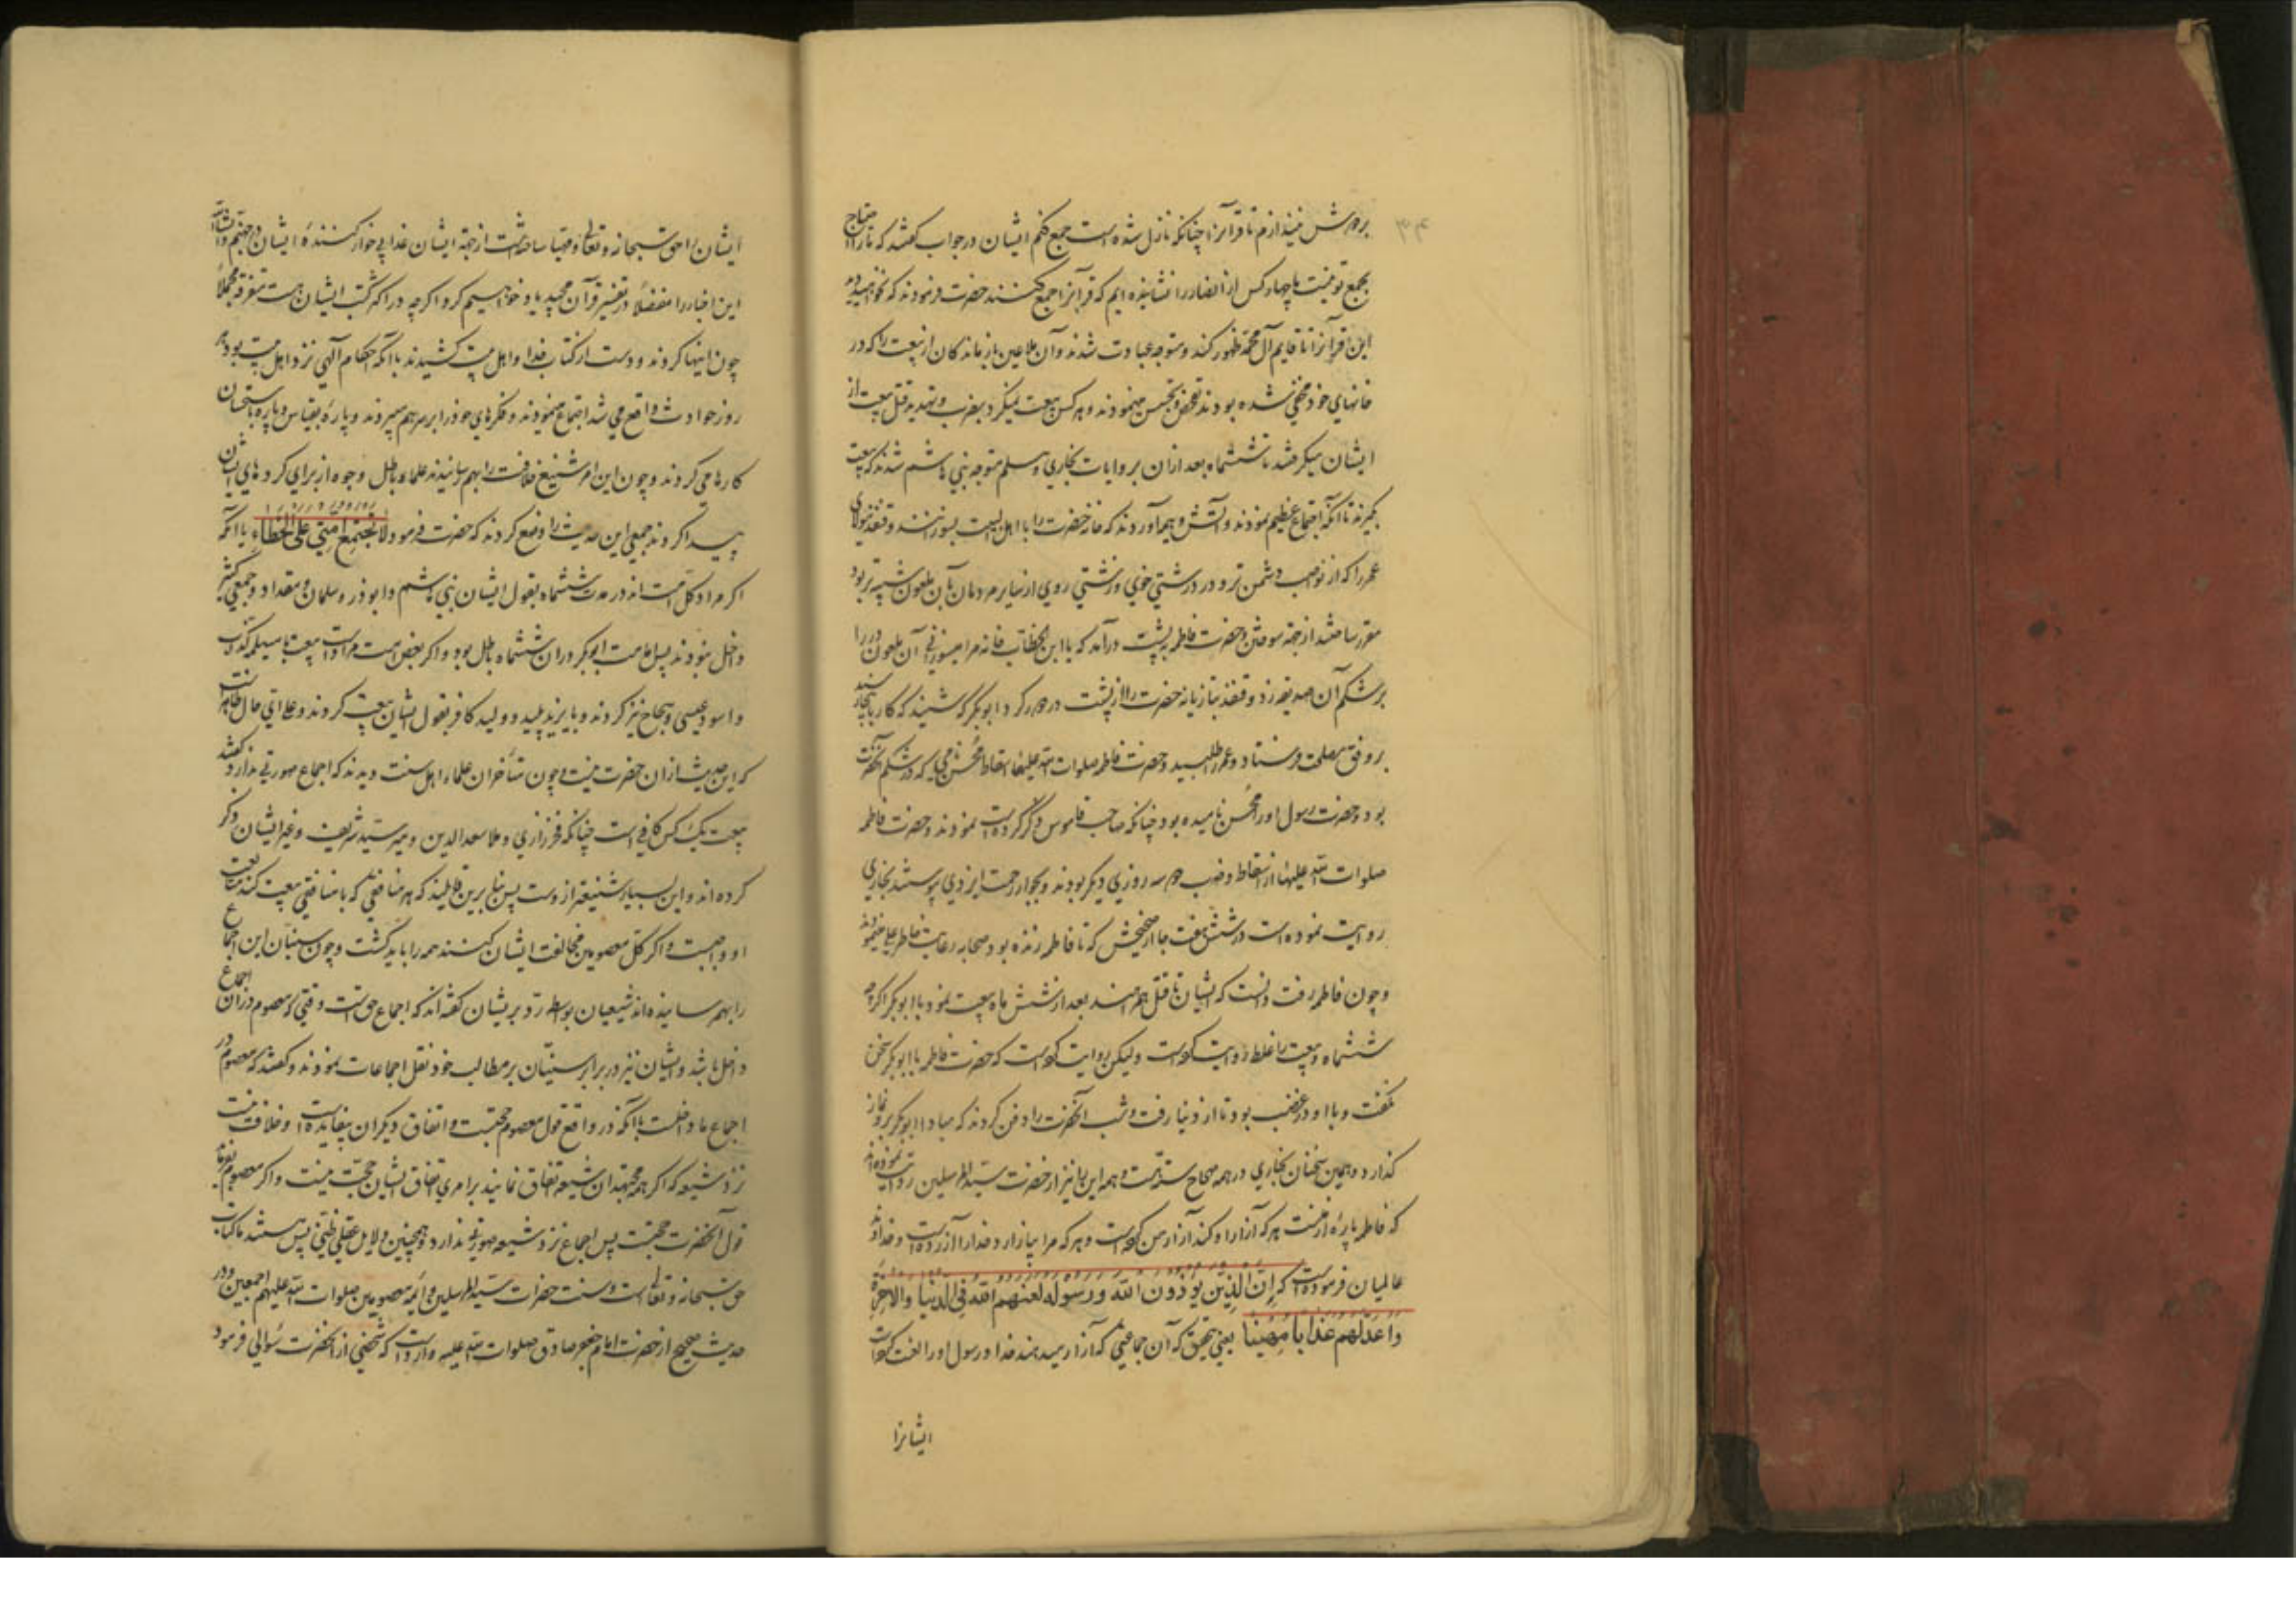 بر دوش نیندازم تا قرآنرا چنانکه نازل شده است جمع کنم ایشان در جواب گفتند که ما را احتیاج
بجمع تو نیست ما چهار کس از انصار را نشانیده ایم که قرآنرا جمع کنند حضرت فرمودند که نخواهید دید
این قرآنرا تا قایم آل محمد ظهور کند و متوجه عبادت شدند و آن ملاعین بازماندگان از بیعت را که در
خانهای خود مخفی شده بودند تفحص و تجسس مینمودند و هر کس بیعت نمیکرد بضرب و تهدید قتل بیعت از
ایشان میگرفتند تا ششماه بعد از آن بروایات بخاری و مسلم متوجه بنی هاشم شدند که بیعت
بگیرند تا آنکه اجتماع عظیم نمودند و آتش و هیمه آوردند که خانه حضرت را با اهل البیت بسوزانند و قنفذ مولای
عمر را که از نواصب دشمن تر و در درشتی خوی و زشتی روی از سایر مردمان بآن ملعون شبیه تر بود
مقرر ساختند از جهة سوختن و حضرت فاطمه به پشت در آمد که یا ابن الخطاب خانه مرا میسوزانی آن ملعون در را
بر شکم آن صدیقه زد و قنفذ بتازیانه حضرت را از پشت در دور کرد ابوبکر که شنید که کار باینجا رسید
بر وفق مصلحت فرستاد و عمر را طلبید و حضرت فاطمه صلوات الله علیها اسقاط محسن نامی که در شکم آنحضرت
بود و حضرت رسول او را محسن نامیده بود چنانکه صاحب قاموس ذکر کرده است نمودند و حضرت فاطمه
صلوات الله علیها از اسقاط و ضرب در سه روزی دیگر بودند و بجوار رحمت ایزدی پیوستند بخاری
روایت نموده است در شش هفت جا از صحیحش که تا فاطمه زنده بود صحابه رعایت خاطر علی مینمودند
و چون فاطمه رفت دانست که ایشان تا قتل همراهند بعد از شش ماه بیعت نمود با ابوبکر اگر چه
ششماه و بیعت را غلط روایت کرده است ولیکن روایت کرده است که حضرت فاطمه با ابوبکر سخن
نگفت و با او در غضب بود تا از دنیا رفت و شب آنحضرت را دفن کردند که مبادا ابوبکر برو نماز
گذارد و همین سخنان بخاری در همه صحاح سته هست و همه این را نیز از حضرت سید المرسلین روایت نموده اند
که فاطمه پاره از منست هر که آزار او کند آزار من کرده است و هر که مرا بیازارد خدا را آزرده است و خداوند
عالمیان فرموده است که إن الذین یؤذون الله ورسوله لعنهم الله فی الدنیا والآخرة
واعدلهم عذابا مهینا یعنی بتحقیق که آن جماعتی که آزار میدهند خدا و رسول او را لعنت کرده است
ایشانرا
ایشان را حق سبحانه و تعالی و مهیا ساخته است از جهة ایشان عذابی خوار کننده ایشان در جهنم و ان شاء الله
این اخبار را مفصلا در تفسیر قرآن مجید یاد خواهیم کرد اگر چه در اکثر کتب ایشان هست متفرقه مجملا
چون اینها کردند و دست از کتاب خدا و اهل بیت کشیدند با آنکه احکام الهی نزد اهل بیت بود هر
روز حوادث واقع می شد اجتماع مینمودند و فکرهای خود را بر سر هم میبردند و پاره بقیاس و پاره باستحسان
کارها می کردند و چون این امر شنیع خلافت را بهم رسانیدند علماء باطل وجوه از برای کردهای ایشان
پیدا کردند جمعی این حدیث را وضع کردند که حضرت فرمود لا تجتمع امتی علی الخطاء با آنکه
اگر مراد کل امت اند در مدت ششماه بقول ایشان بنی هاشم و ابوذر و سلمان و مقداد و جمعی کثیر
داخل نبودند پس امامت ابوبکر در ان ششماه باطل بود و اگر بعض امت مراد است بیعت با مسیلمه کذاب
و اسود عنسی و سجاح نیز کردند و با یزید پلید و ولید کافر بقول ایشان بیعت کردند و علی ای حال ظاهر است
که این حدیث از ان حضرت نیست و چون متأخران علماء اهل سنت دیدند که اجماع صورتی ندارد گفتند
بیعت یک کس کافی است چنانکه فخر رازی و ملا سعد الدین و میر سید شریف و غیر ایشان ذکر
کرده اند و این بسیار شنیعتر از وست پس بنا برین قایلند که هر منافقی که با منافقی بیعت کند متابعت
او واجبست و اگر کل معصومین مخالفت ایشان کنند همه را باید کشت و چون سنیان این اجماع
را بهم رسانیده اند شیعیان بواسطه رد بر ایشان گفته اند که اجماع حق است وقتی که معصوم در ان اجماع
داخل باشد و ایشان نیز در برابر سنیان بر مطالب خود نقل اجماعات نمودند و گفتند که معصوم در
اجماع ما داخلست با آنکه در واقع قول معصوم حجتست و اتفاق دیگران بیفایده است و خلاف نیست
نزد شیعه که اگر همه مجتهدان شیعه اتفاق نمایند بر امری اتفاق ایشان حجت نیست و اگر معصوم بفرماید
قول آنحضرت حجتست پس اجماع نزد شیعه صورتی ندارد و همچنین دلایل عقلی ظنی پس مستند ما کتاب
حق سبحانه و تعالی است و سنت حضرات سید المرسلین و ائمه معصومین صلوات الله علیهم اجمعین و در
حدیث صحیح از حضرت امام جعفر صادق صلوات الله علیه وارد است که شخصی از آنحضرت سؤالی فرمود